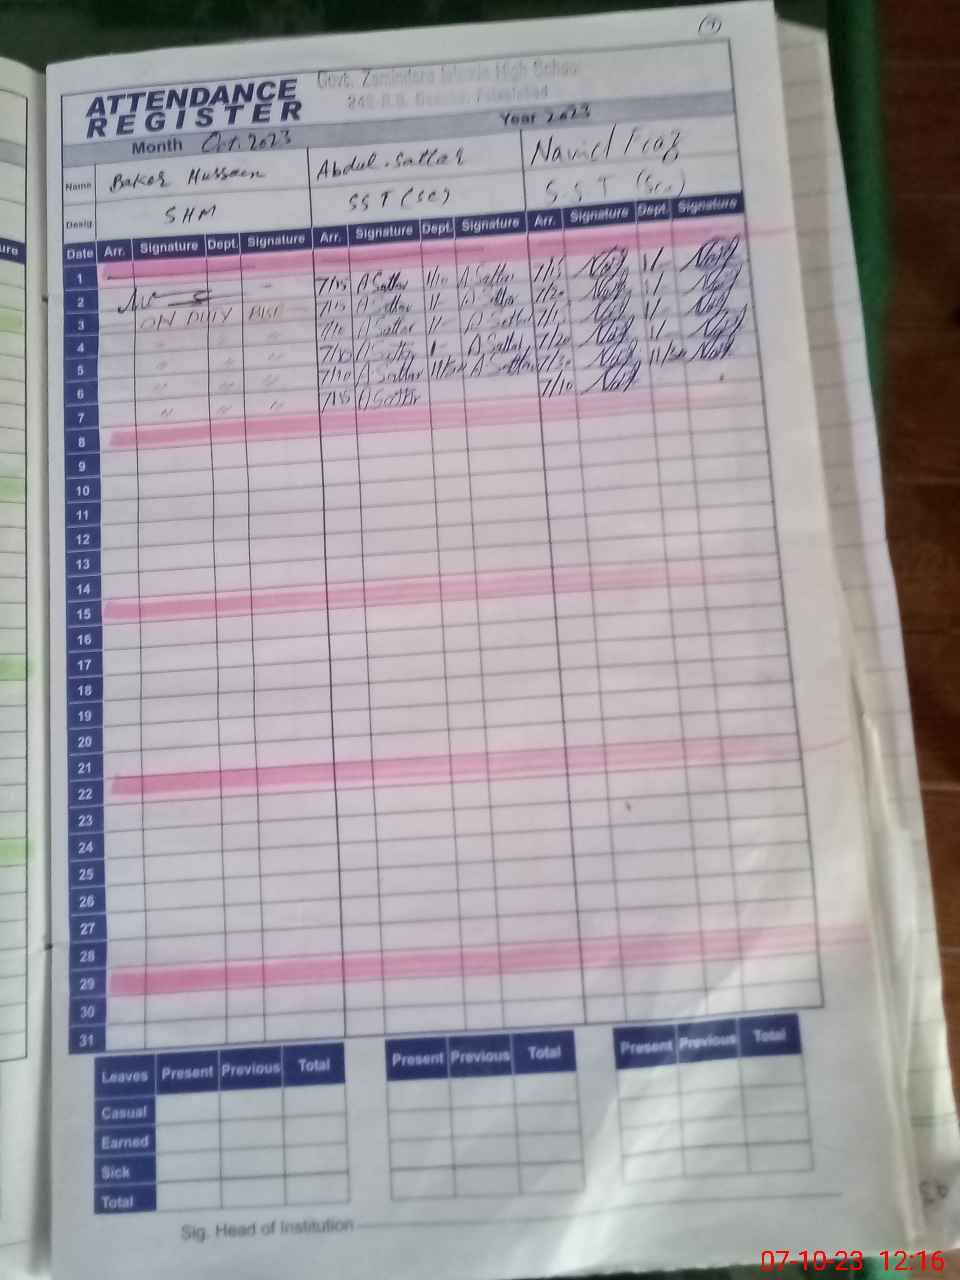 Govt. Zamindara Islamia High School
ATTENDANCE
REGISTER
Month Oct. 2023 Year 2023
Name Baker Hussain Abdul Sattar
Desig SHM SST (SC) S.S.T (Sc.)
Date Arr. Signature Dept. Signature Arr. Signature Dept. Signature Arr. Signature Dept. Signature
1
2 7/15 A Sattar 1/10 A Sattar 7/15
3 ON DUTY 7/15 A Sattar 1/- A Sattar 7/20 1/-
4 " " " 7/10 A Sattar 1/- A Sattar 1/-
5 " " " 7/10 A Sattar A Sattar 7/20 1/-
6 " " " 7/10 A Sattar 11/30 A Sattar 7/30 11/30
7 " " " 7/15 A Sattar 7/10
8
9
10
11
12
13
14
15
16
17
18
19
20
21
22
23
24
25
26
27
28
29
30
31
Leaves Present Previous Total Present Previous Total Present Previous Total
Casual
Earned
Sick
Total
Sig. Head of Institution
07-10-23 12:16